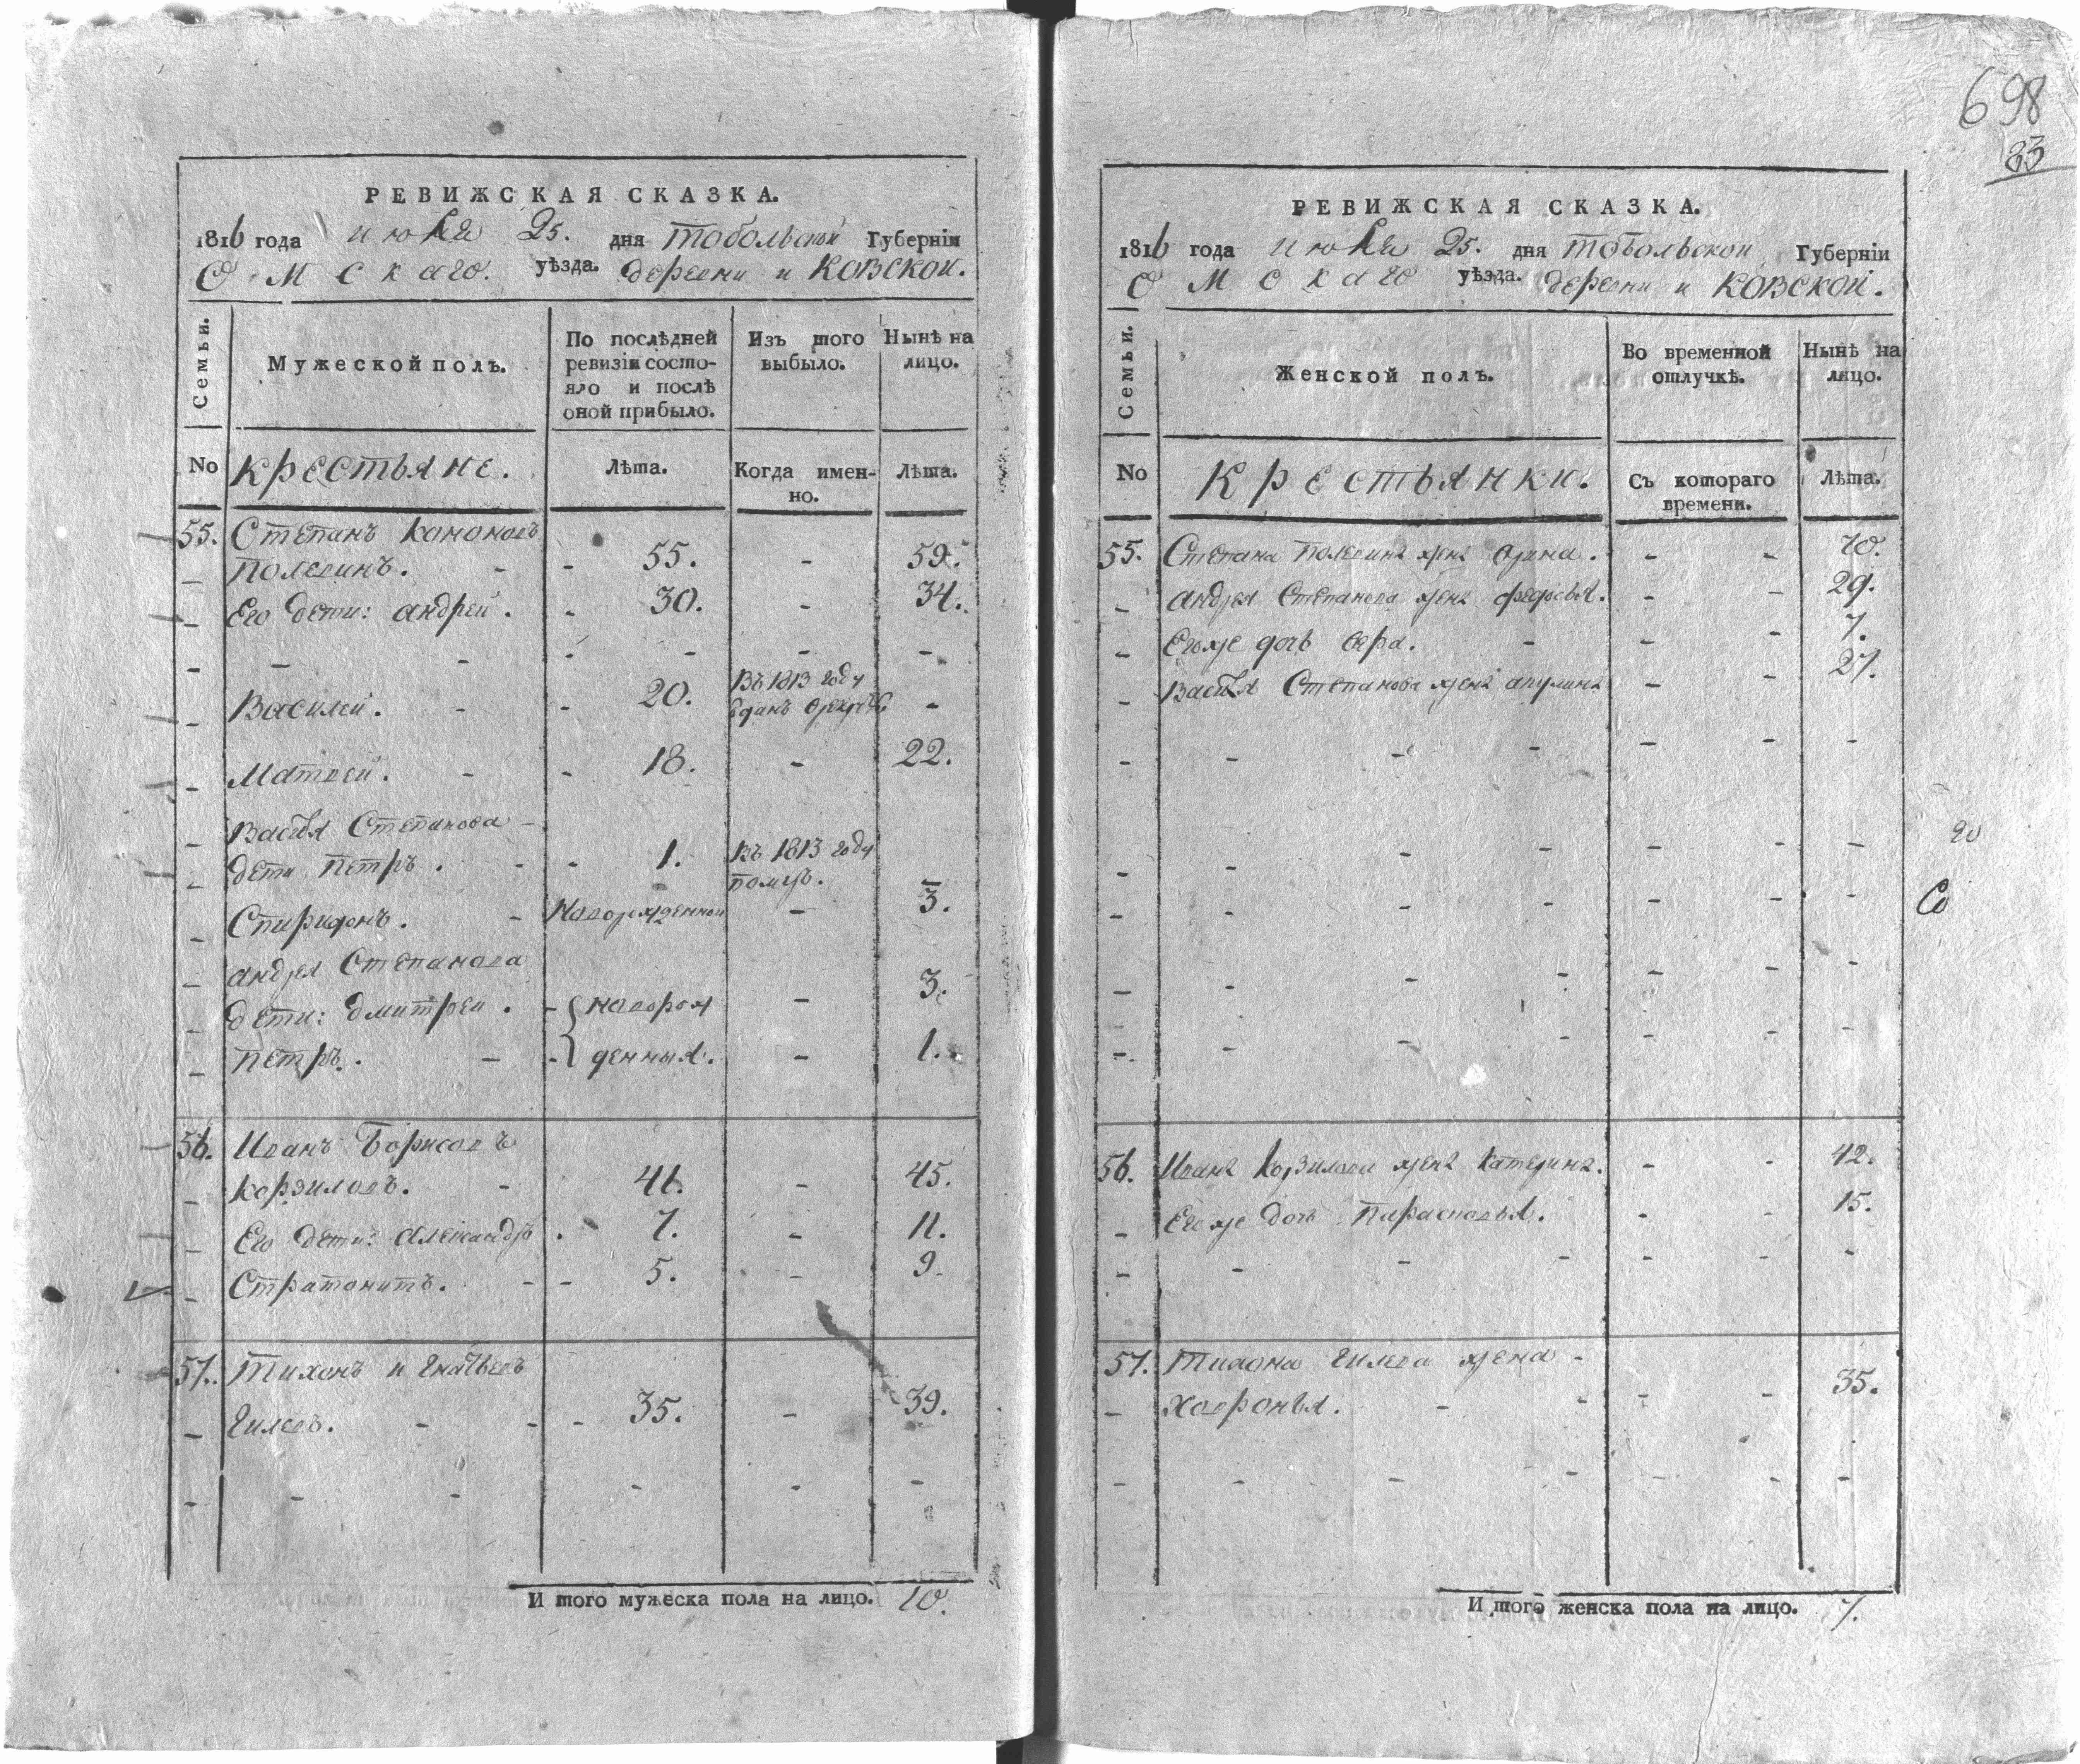 698
83
РЕВИЖСКАЯ СКАЗКА.
1816 года июля 25. дня Тобольской Губерніи
Омскаго. уѣзда. деревни иковской.
Семьи.
Мужеской полъ.
По послѣдней ревизіи состояло и послѣ оной прибыло.
Изъ того выбыло.
Нынѣ на лицо.
No крестьяне. Лѣта. Когда именно. Лѣта.
55. Степанъ Кононовъ
Полевинъ. - - 55. - 59.
Его дети: андрей. - 30. - 34.
- - - - - - -
Василей. - - 20. Въ 1813 году отданъ врекруты -
Матвей. - - 18. - 22.
Василья Степанова -
дети Петръ. - - 1. Въ 1813 году померъ.
Спиридонъ. - Новорожденной - 3.
андрея Степанова
дети: дмитреи. - новорож - 3.
Петръ. - - денныя. - 1.
56. Иванъ Борисовъ
Корзиловъ. - 41. - 45.
Его дети: Александръ. 7. - 11.
Стратонитъ. - - 5. - 9.
57. Тихонъ игнатьевъ
Гилевъ. - - - 35. - 39.
- - - - - -
И того мужеска пола на лицо. 10.
РЕВИЖСКАЯ СКАЗКА.
1816 года июля 25. дня тобольской Губерніи
Омскаго уѣзда. деревни иковской.
Семьи.
Женской полъ.
Во временной отлучкѣ.
Нынѣ на лицо.
No Крестьянки. Съ котораго времени. Лѣта.
55. Степана Полевина жена орина. - - 70.
андрея Степанова жена федосья. - - 29.
Егоже дочь вера. - - - 7.
Василья Степанова жена акулина - - 27.
56. Ивана Корзилова жена Катерина. - - 42.
Егоже дочь Парасковья. - - 15.
57. Тихона Гилева жена -
Ховронья. - - - - 35.
И того женска пола на лицо. 7.